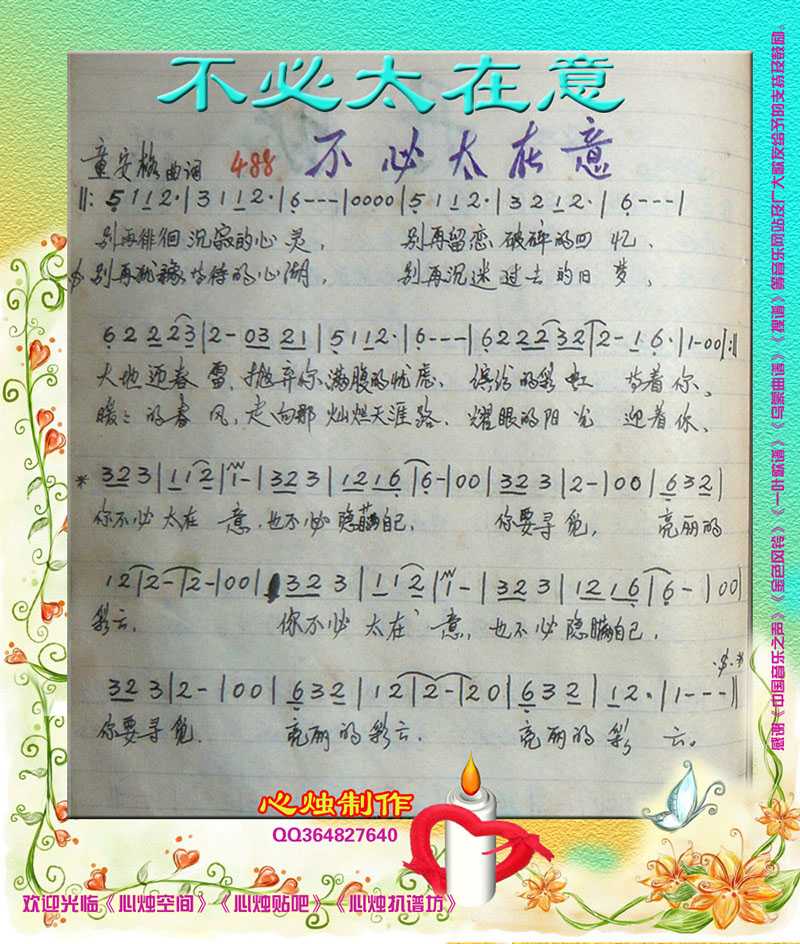 不必太在意
童安格曲词 488 不必太在意
‖: 5 1 1 2· | 3 1 1 2· | 6 - - - | 0 0 0 0 | 5 1 1 2· | 3 2 1 2· | 6 - - - |
别再徘徊沉寂的心灵， 别再留恋破碎的回忆、
别再 的心湖， 别再沉迷过去的旧梦，
6 2 2 2 2 3 | 2 - 0 3 2 1 | 5 1 1 2· | 6 - - - | 6 2 2 2 3 2 | 2 - 1 6· | 1 - 0 0 :‖
大地迎春雷，抛弃你满腹的忧虑、 缤纷的彩虹 着你、
暖暖的春风，走向那灿烂天涯路、耀眼的阳光 迎着你、
* 3 2 3 | 1 1 2 | 1 - | 3 2 3 | 1 2 1 6 | 6 - | 0 0 | 3 2 3 | 2 - | 0 0 | 6 3 2 |
你不必太在意，也不必隐瞒自己、 你要寻觅， 亮丽的
1 2 | 2 - | 2 - | 0 0 | 3 2 3 | 1 1 2 | 1 - | 3 2 3 | 1 2 1 6 | 6 - | 0 0 |
彩云、 你不必太在意，也不必隐瞒自己，
3 2 3 | 2 - | 0 0 | 6 3 2 | 1 2 | 2 - | 2 0 | 6 3 2 | 1 2· | 1 - - - ‖
你要寻觅、 亮丽的彩云、 亮丽的彩云。
心烛制作
QQ364827640
欢迎光临《心烛空间》《心烛贴吧》《心烛扒谱坊》
感谢《中国音乐之声》《金色风铃》《一叶秋谱》《乌蒙曲谱》《搜谱》等音乐网站及广大歌友给予的支持及鼓励。